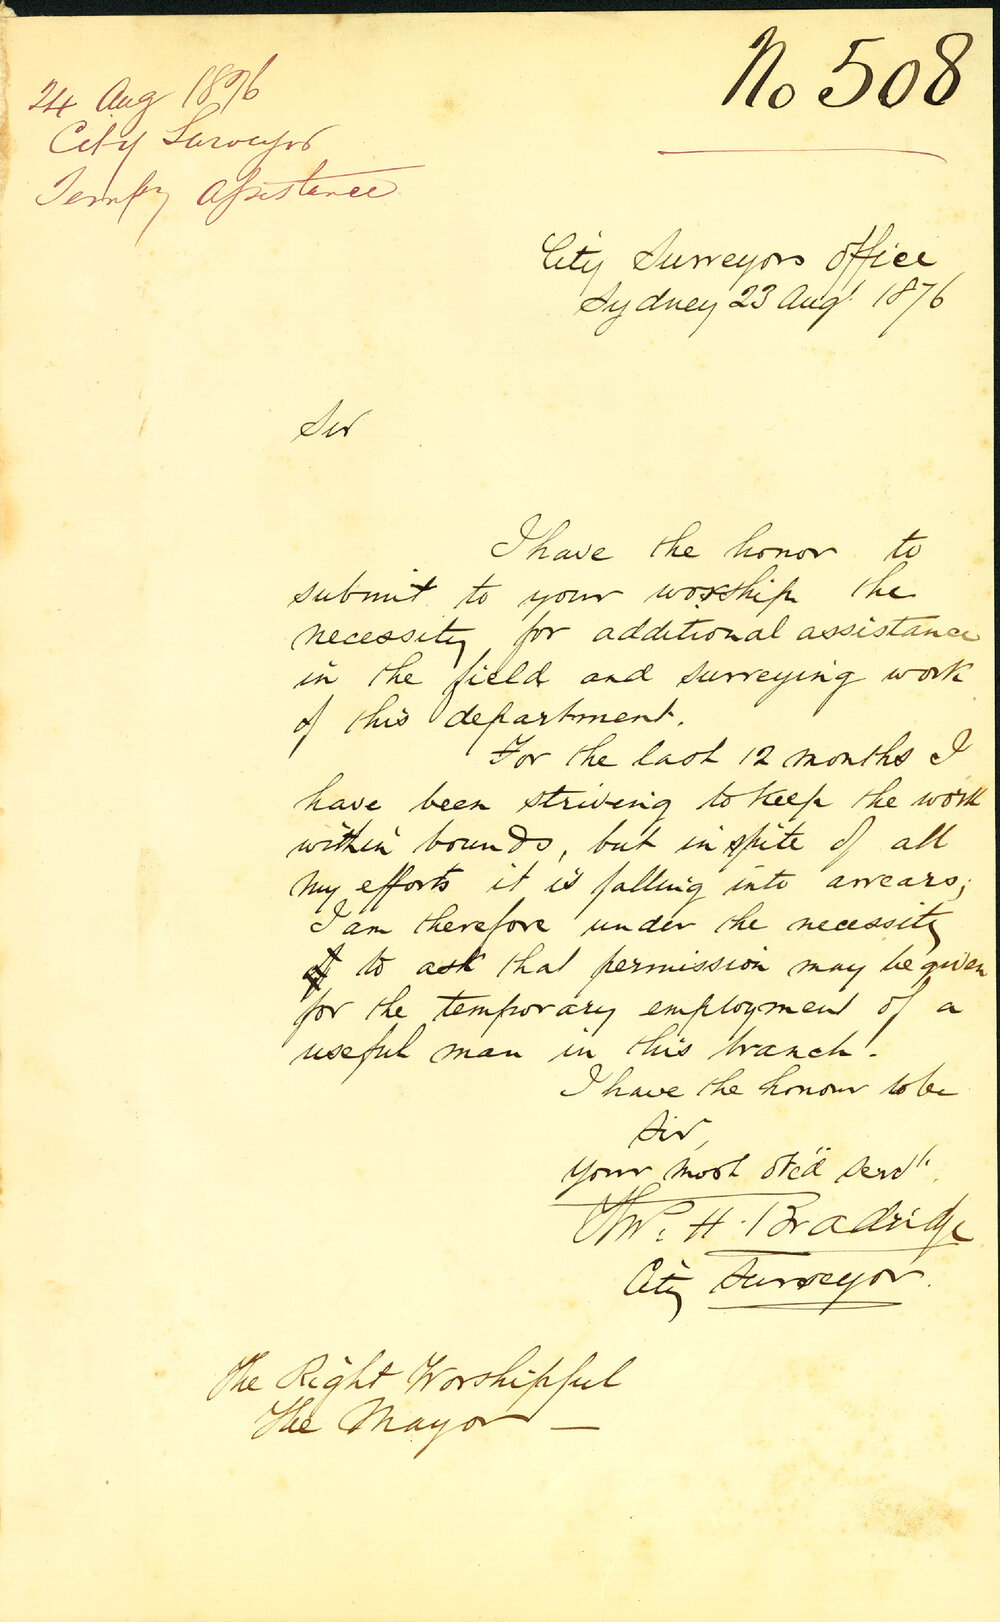 No 508
24 Aug 1876
City Surveyor
Tempy Assistance
City Surveyors Office
Sydney 23 Augt 1876
Sir
I have the honor to
submit to your worship the
necessity for additional assistance
in the field and surveying work
of this department.
For the last 12 months I
have been striving to keep the work
within bounds, but in spite of all
my efforts it is falling into arrears;
I am therefore under the necessity
to ask that permission may be given
for the temporary employment of a
useful man in this branch.
I have the honour to be
Sir,
your most obed servt.
Thos. H. Bradridge
City Surveyor.
The Right Worshipful
The Mayor —